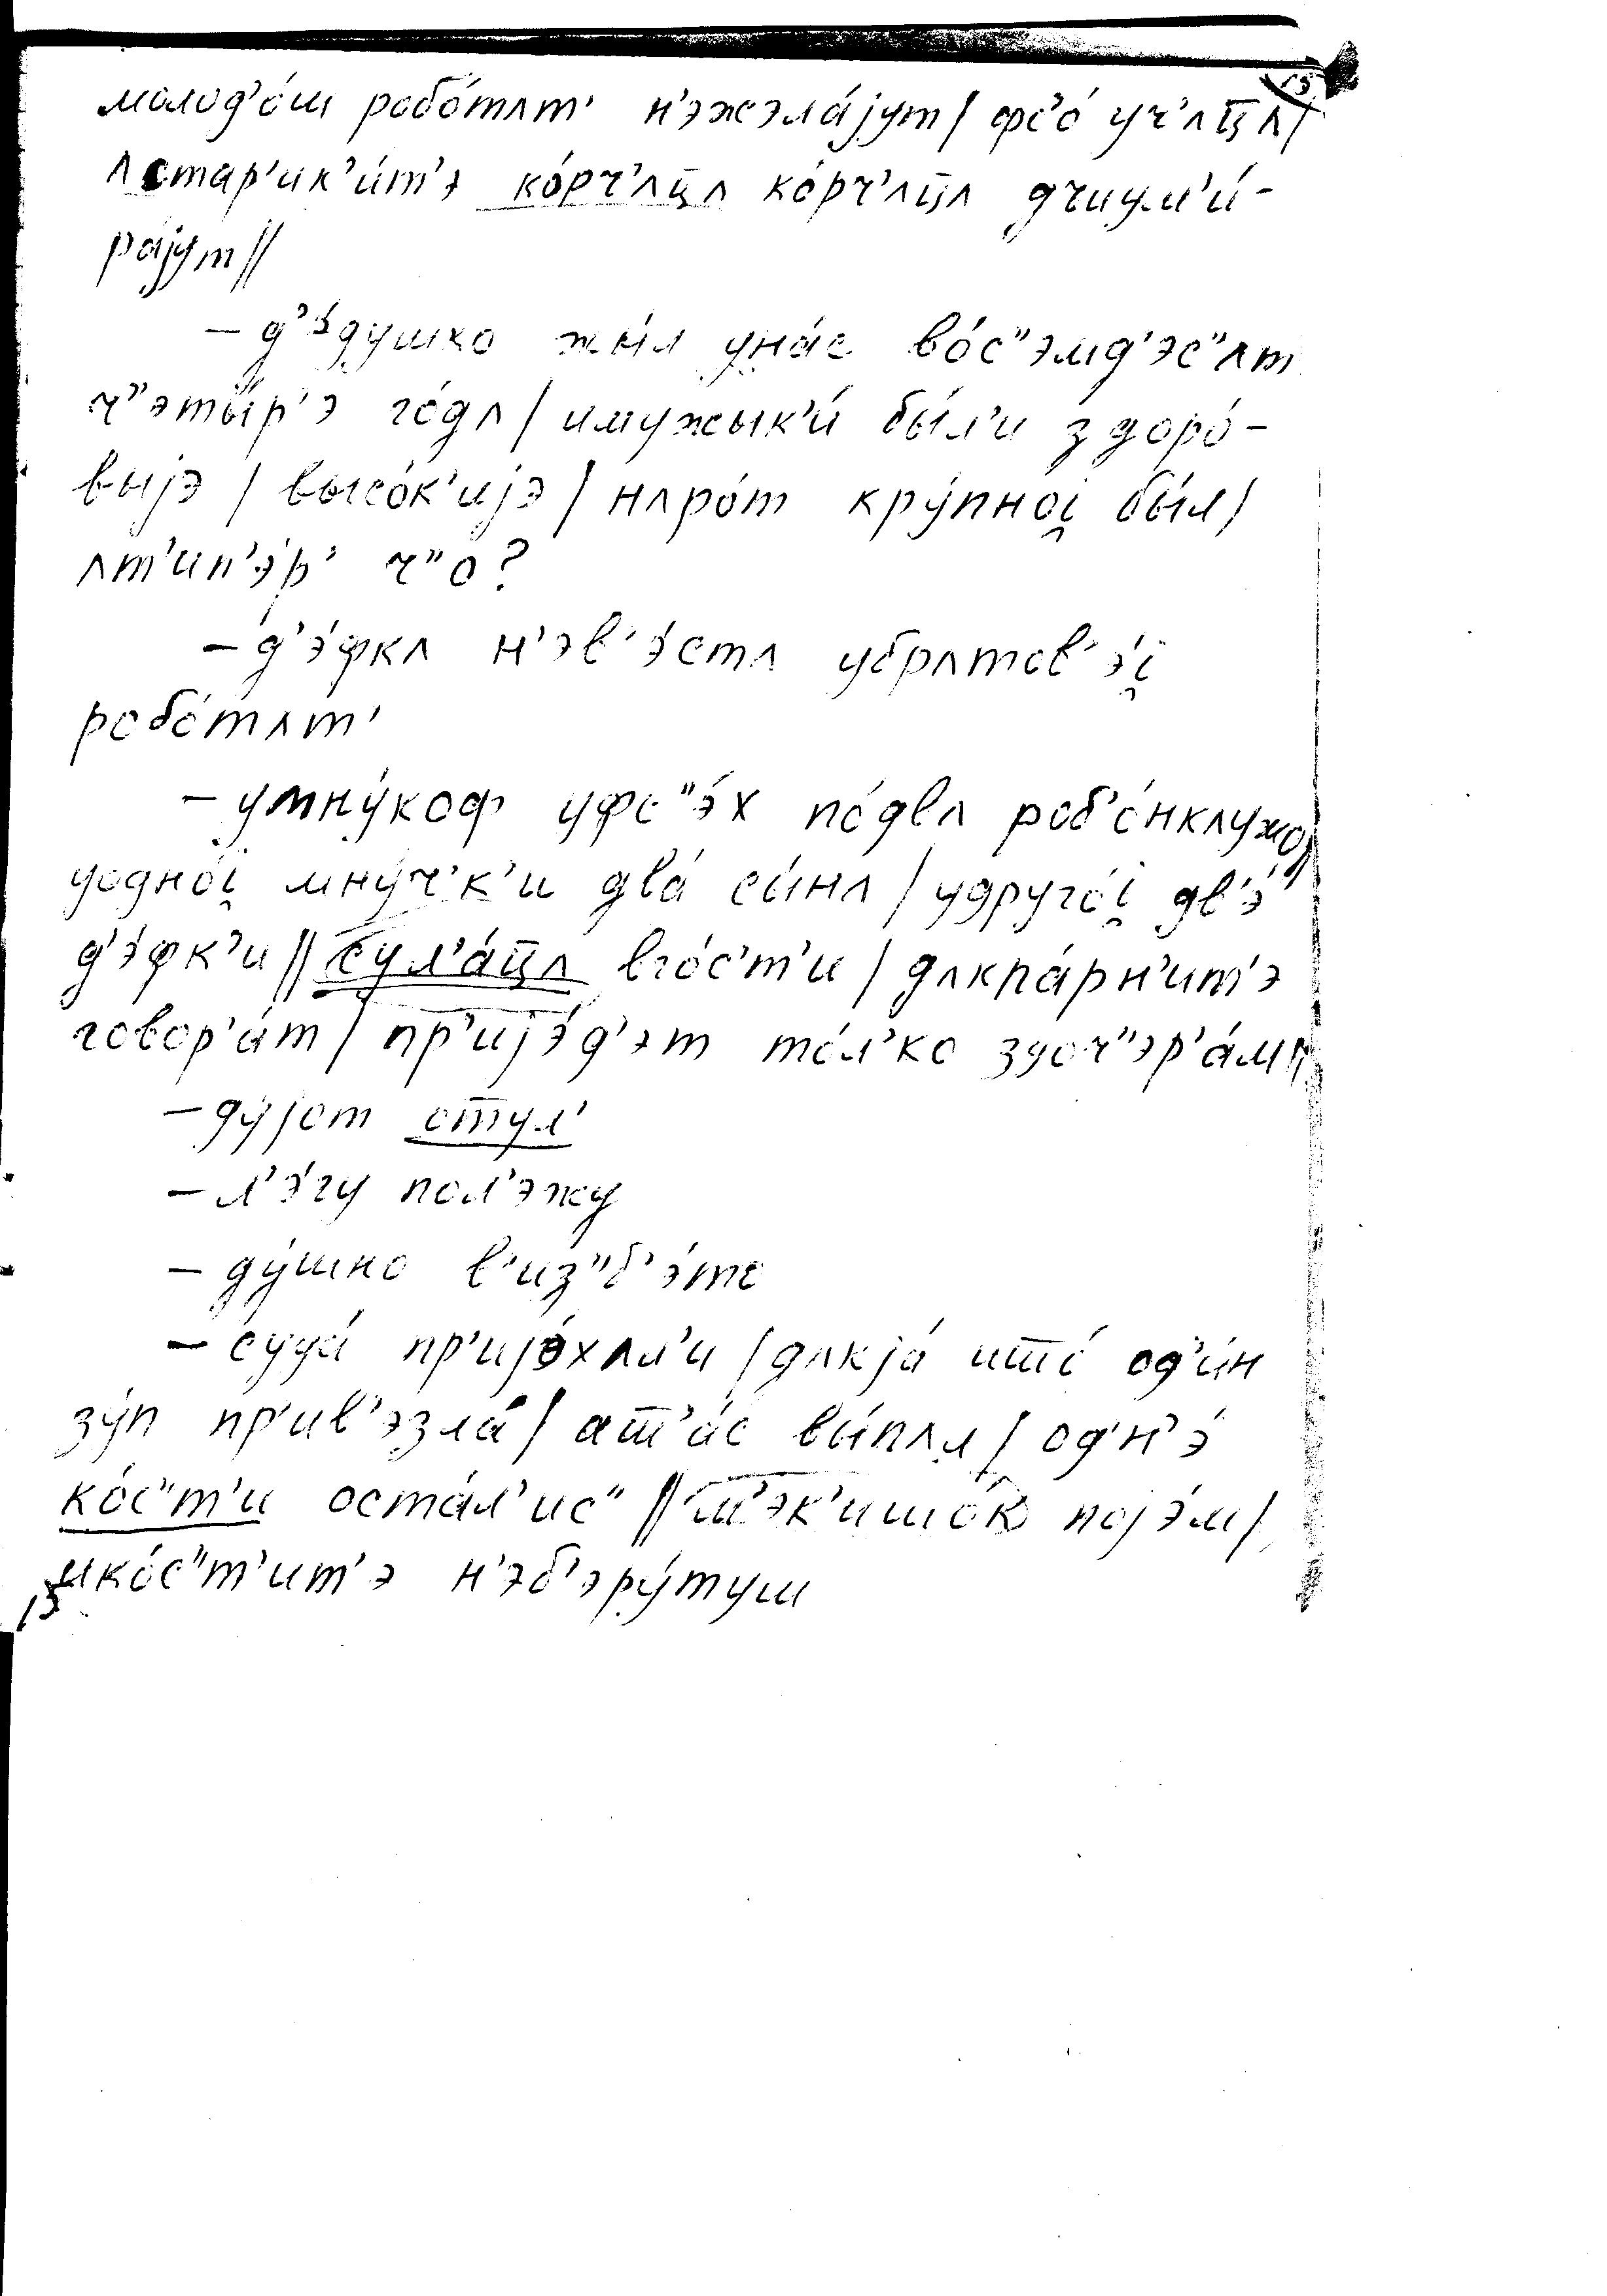 15
молод'о́ш робо́тʌт' н'эжэла́јут / фс'о́ уч'ʌц̅ʌ /
ʌстар'ик'и́т'э ко́рч'ʌц̅ʌ ко́рч'ʌц̅ʌ дчиум'и́-
рајут //
– д'э́душко жы́л уна́с во́с"эмд'эс"ʌт
ч"эты́р'э го́дʌ / имужык'и́ бы́л'и здоро́-
выјэ / высо́к'ијэ / нʌро́т кру́пноі̯ бы́л /
ʌт'ип'э́р' ч"о?
– д'э́фкʌ н'эв'э́стʌ убрʌтов'э́і̯
робо́тʌт'
– умну́коф уфс"э́х по́двʌ роб'о́нкʌужо //
уодно́і̯ мну́ч'к'и два́ сы́нʌ / удруго́і̯ дв'э́
д'э́фк'и // сул'а́ц̅ʌ вго́с'т'и / дʌкпа́рн'ит'э
говор'а́т / пр'ијэ́д'эт то́л'ко здоч"эр'а́ми
– ду́јот стул'
– л'э́гу пол'эжу
– ду́шно в'из"б'э́то
– сууа́ пр'ијэ́хʌл'и / дʌкја́ ишто́ од'и́н
зу́п пр'ив'эзла́ / ат̅'а́с вы́пʌл / од'н'э́
ко́с"т'и оста́л'ис" // м'эк'ишо́к појэ́м /
ико́с"т'ит'э н'эб'эру́туш
15